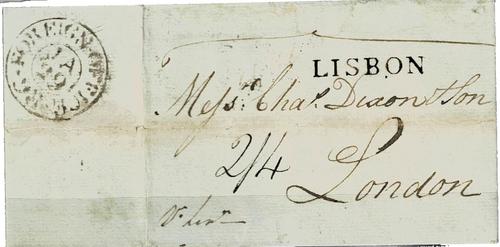 FOREIGN OFFICE
JA
LISBON
Messrs. Chas. Dixon & Son
2/4
London